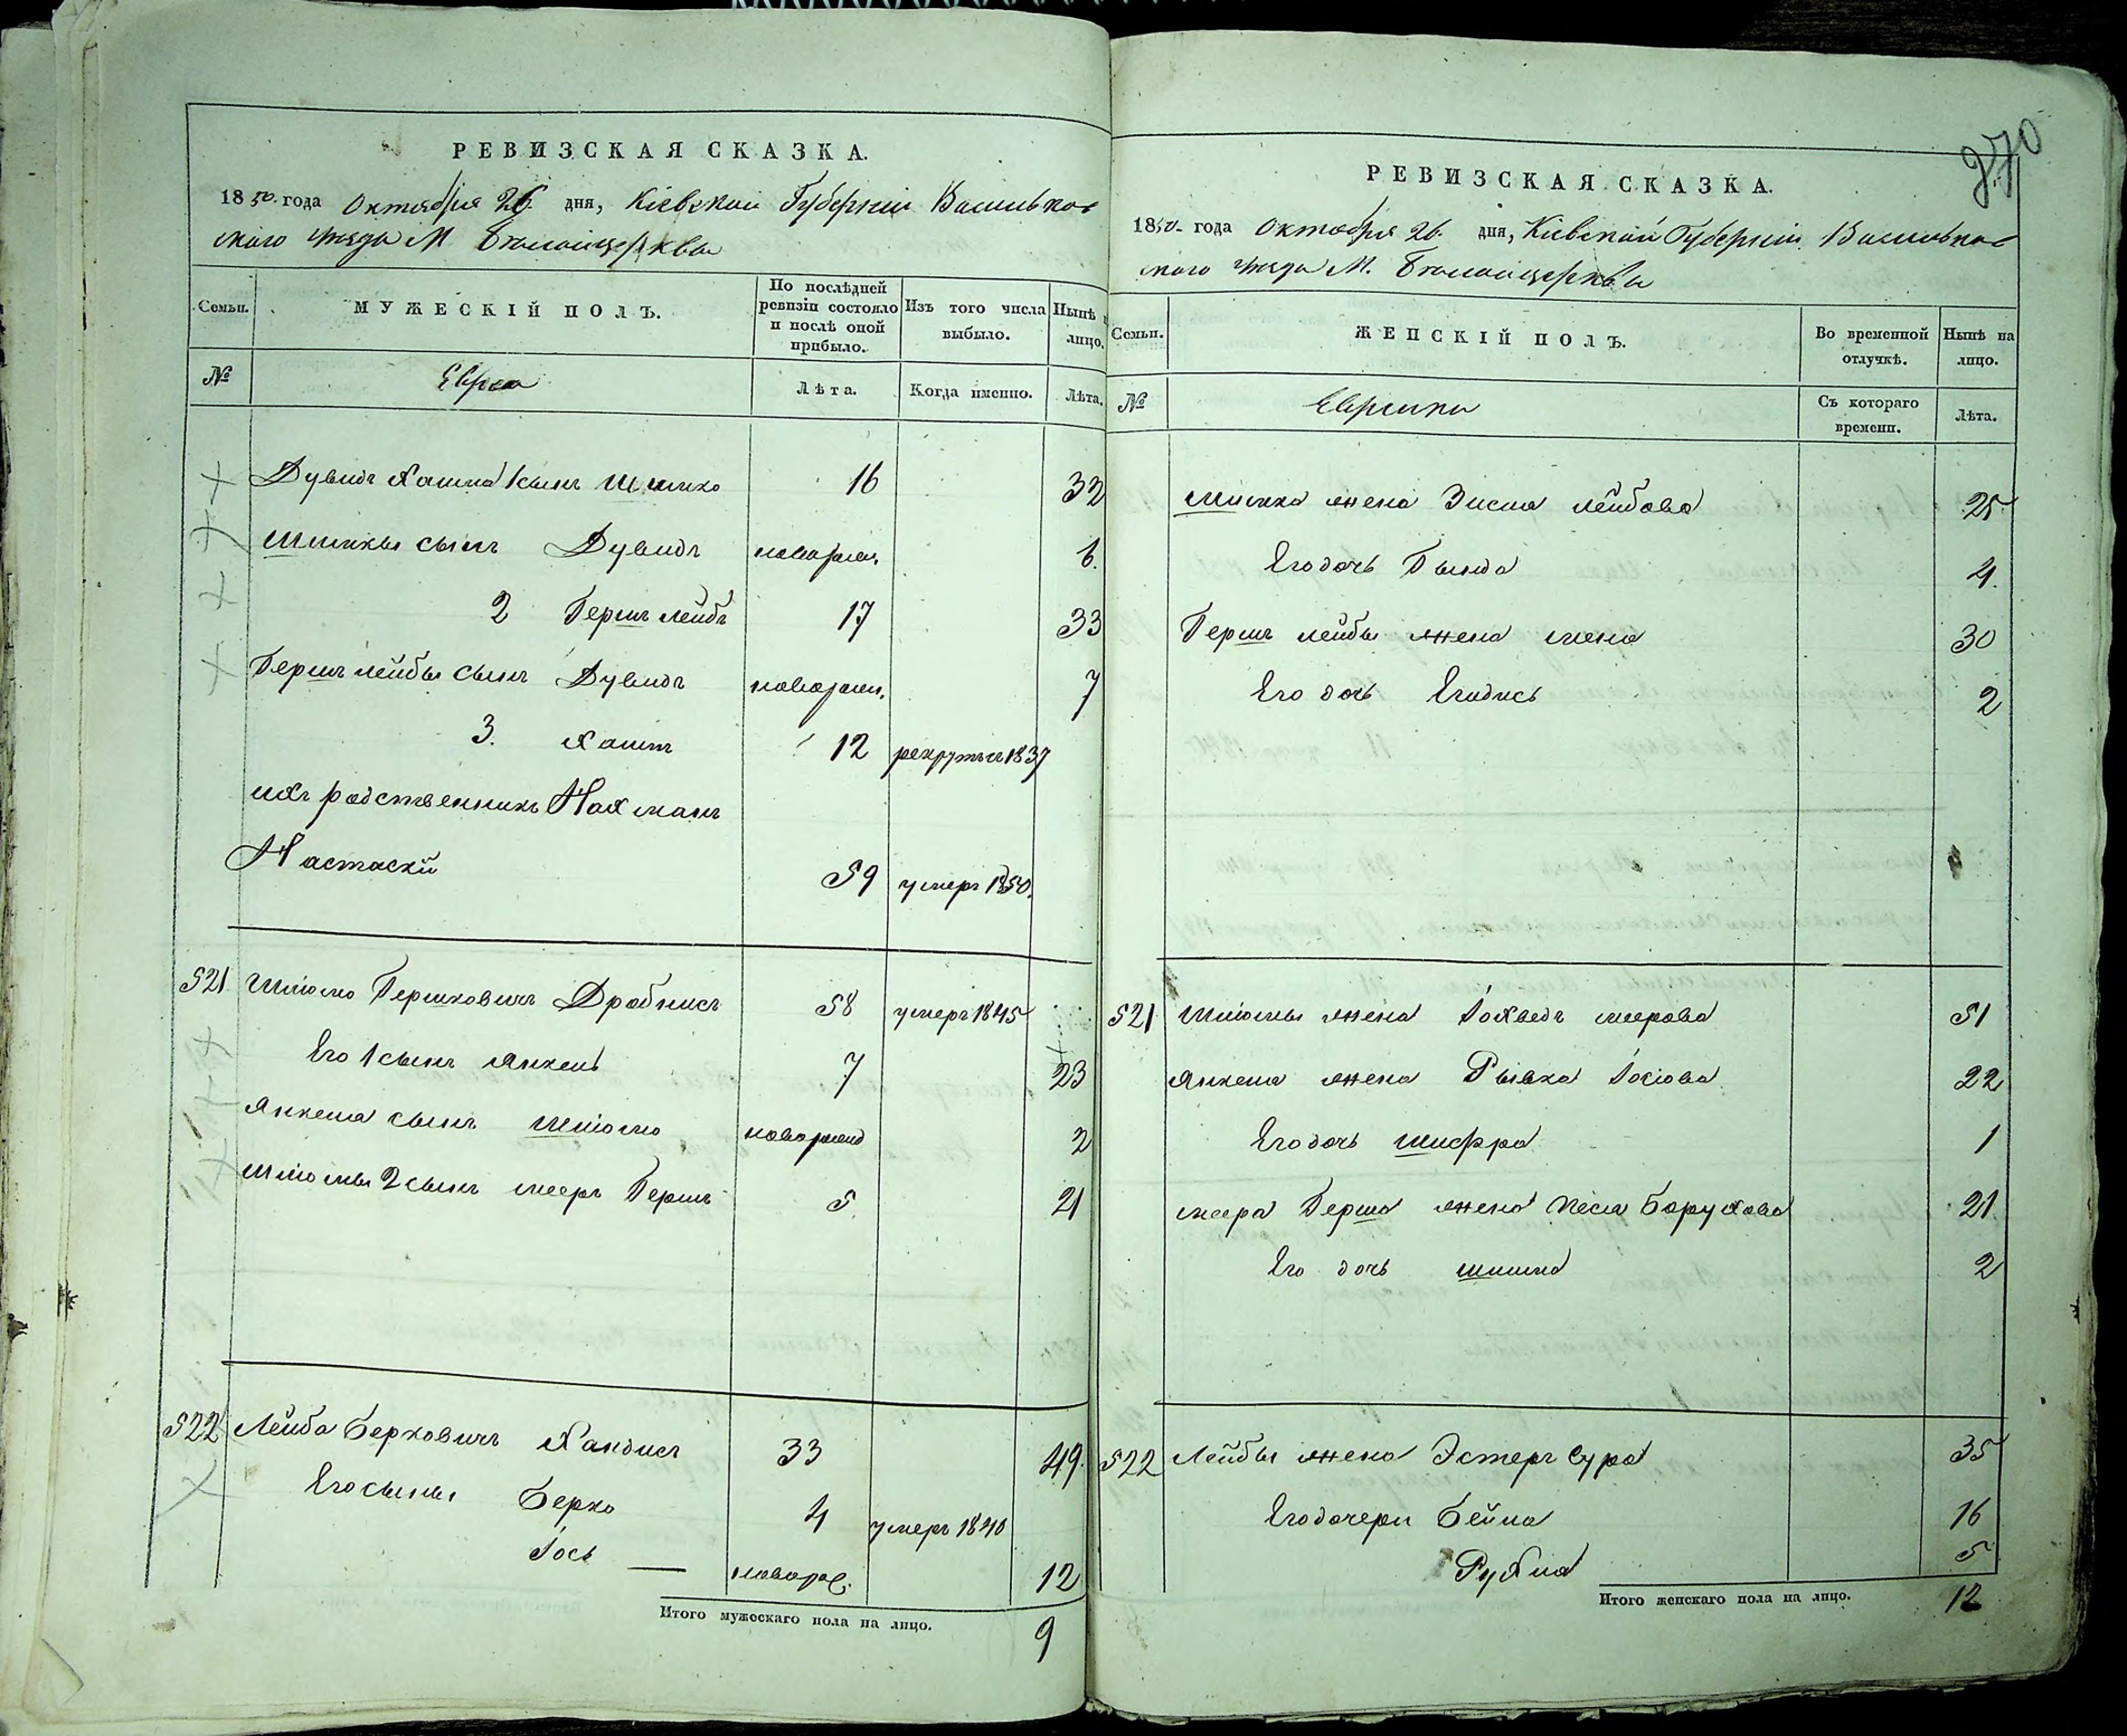 270
РЕВИЗСКАЯ СКАЗКА.
1850. года Октября 26. дня, Кіевской Губерніи Васильков
скаго уезда М. Белойцеркви
Семьи. МУЖЕСКІЙ ПОЛЪ. По послѣдней ревизіи состояло и послѣ оной прибыло. Изъ того числа выбыло. Нынѣ лицо.
№ Евреи Лѣта. Когда именно. Лѣта.
Дувидъ Хаима 1 сынъ Шимко 16 32
Шимки сынъ Дувидъ новорож. 6.
2 Гершъ Лейбъ 17 33
Гершъ Лейбы сынъ Дувидъ новорож. 7
3. Хаимъ 12 рекрутъ съ 1837
ихъ родственникъ Нахманъ
59 умеръ 1850.
521 Шліомо Гершковичъ Драбнисъ 58 умеръ 1845
Его 1 сынъ Янкель 7 23
Янкеля сынъ Шліомо новорожд 2
Шліомы 2 сынъ Мееръ Гершъ 5 21
522 Лейба Берковичъ Хандисъ 33 49.
Его сыны Берко 4 умеръ 1840
Іось новорож. 12
Итого мужескаго пола на лицо. 9
РЕВИЗСКАЯ СКАЗКА.
1850 года Октября 26. дня, Кіевской Губерніи Васильков
скаго уезда М. Белойцеркви
Семьи. ЖЕНСКІЙ ПОЛЪ. Во временной отлучкѣ. Нынѣ на лицо.
№ Еврейки Съ котораго времени. Лѣта.
Шимка жена Зисля Лейбова 25
Его дочь 4.
Гершъ Лейбы жена 30
Его дочь 2
521 Шліомы жена Іохведъ Меерова 51
Янкеля жена Рывка Іосіова 22
Его дочь Шифра 1
Меера Герша жена Песя Борухова 21
Его дочь 2
522 Лейбы жена Эстеръ Сура 35
Его дочери Бейла 16
Рухля 5
Итого женскаго пола на лицо. 12